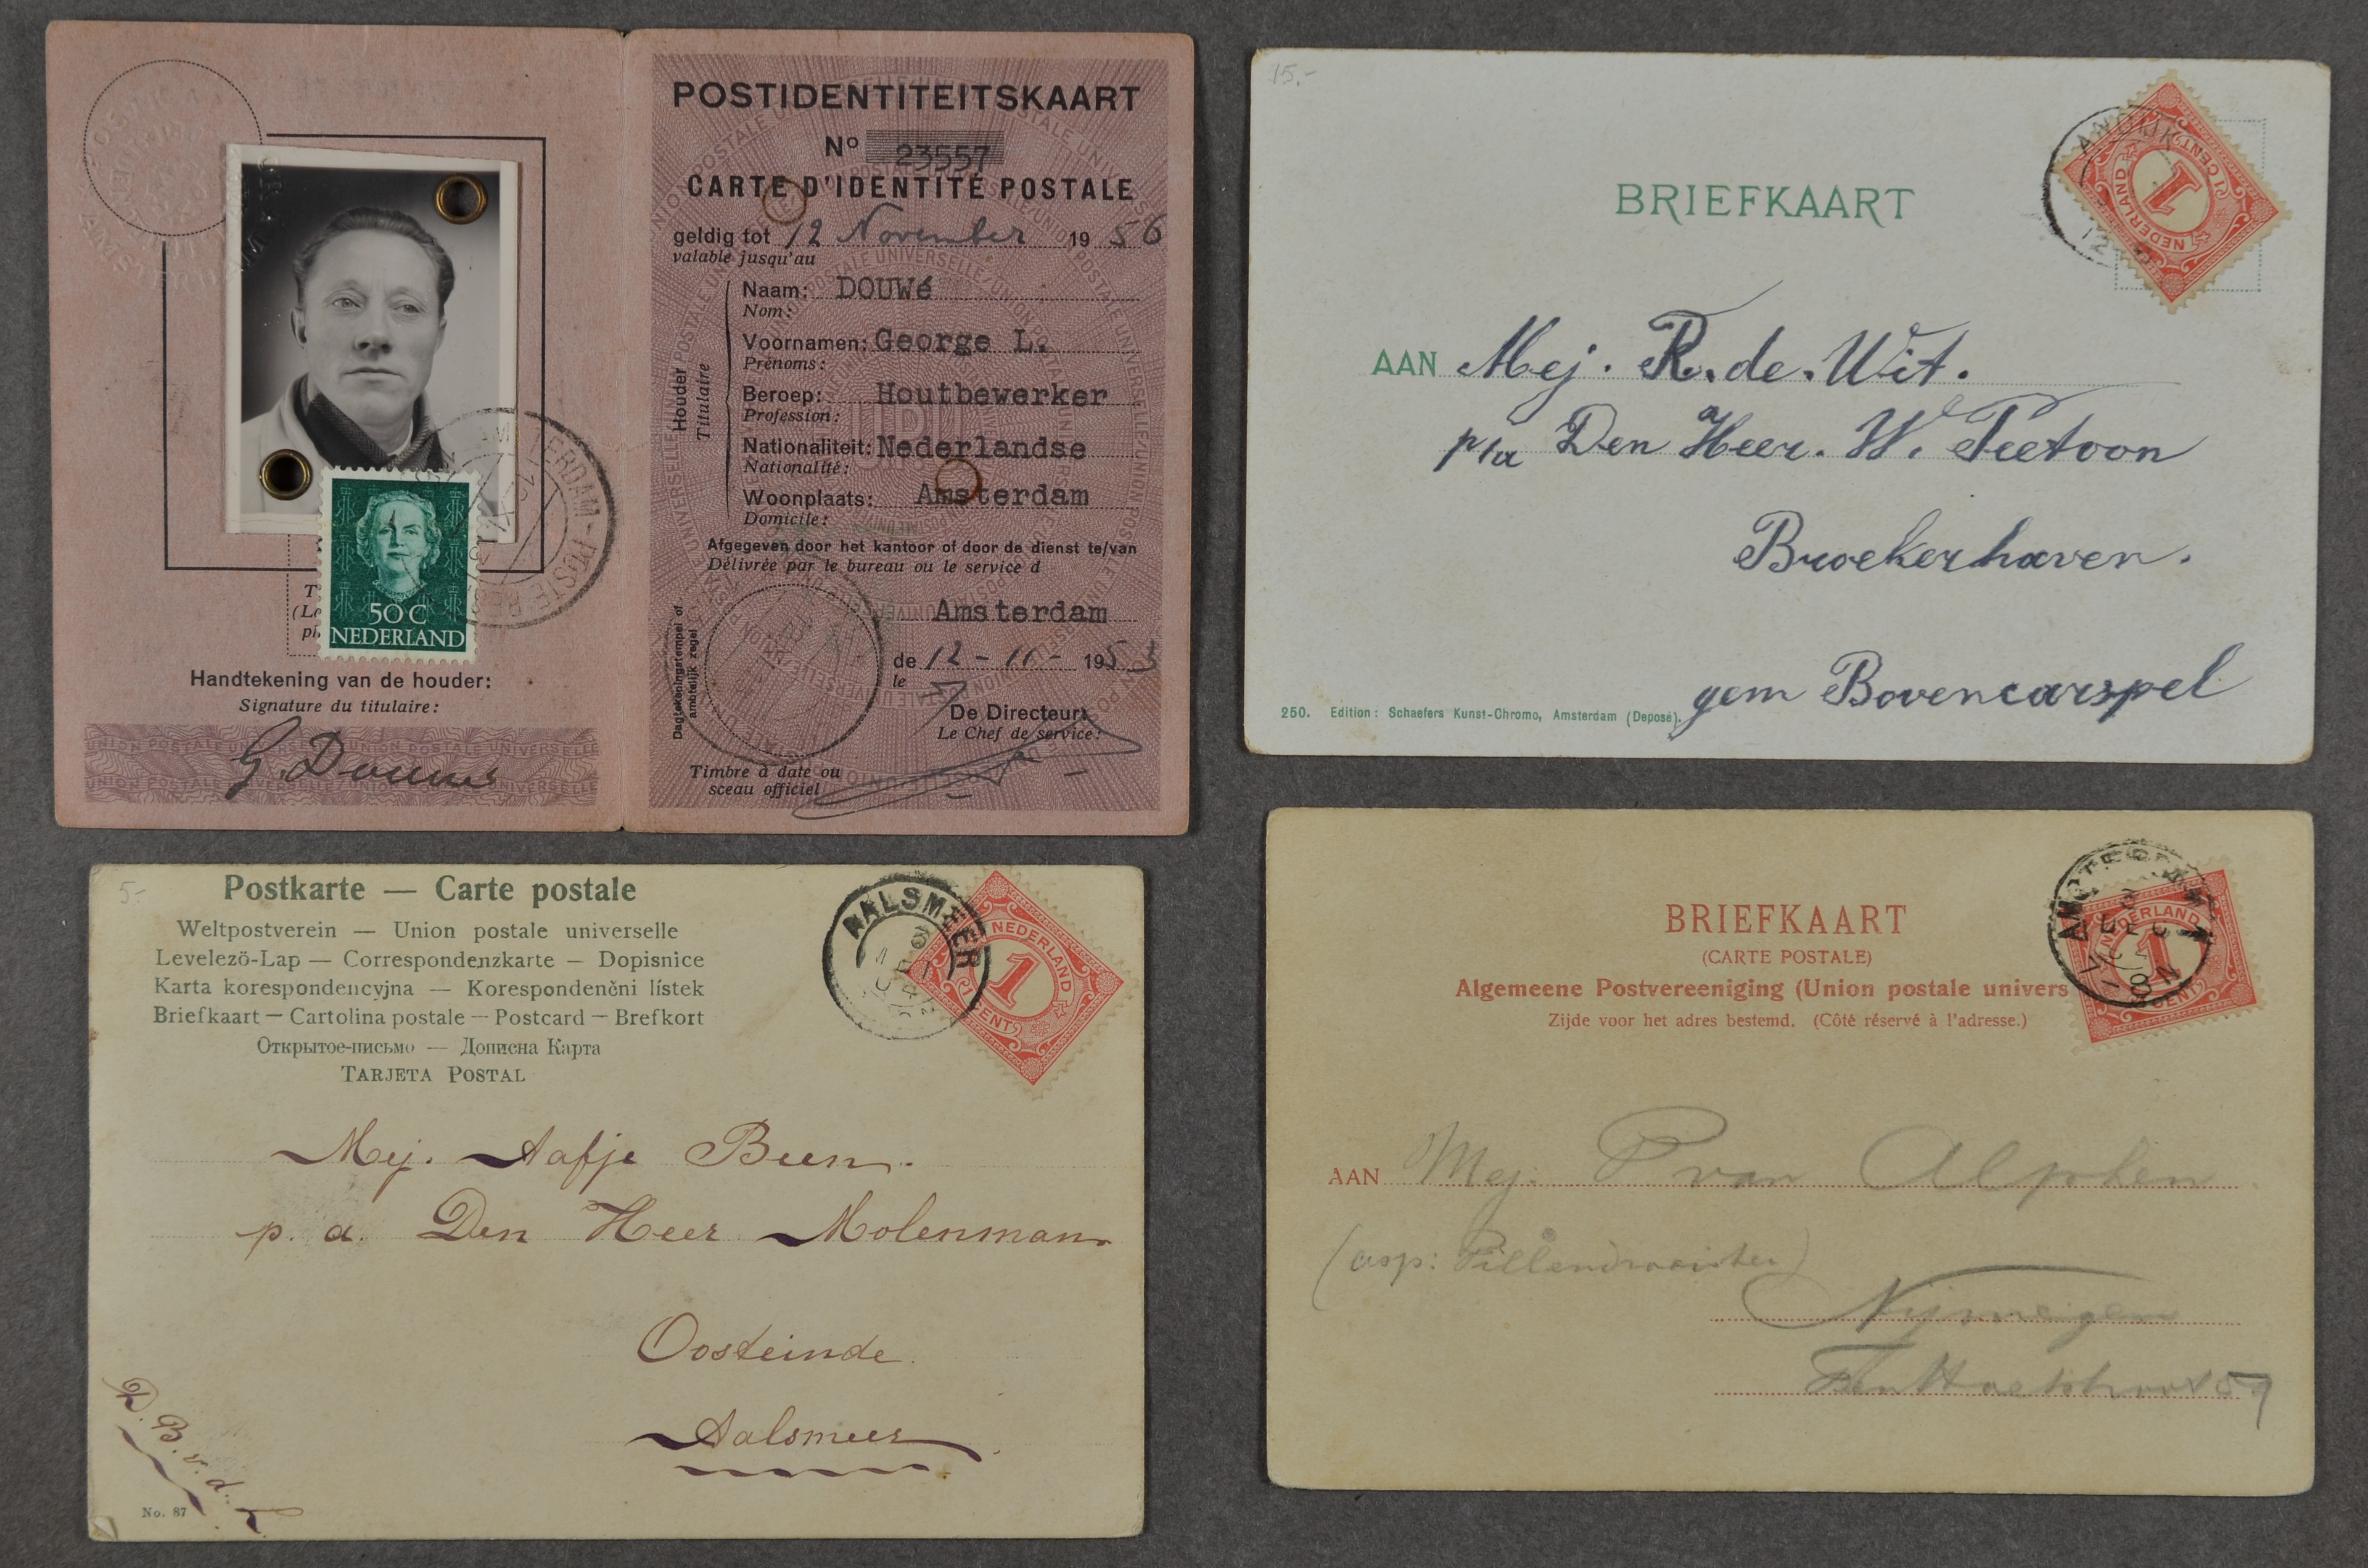 POSTIDENTITEITSKAART
Nº 23557
CARTE D'IDENTITÉ POSTALE
geldig tot 12 November 1956
valable jusqu'au
Houder
Titulaire
Naam: DOUWé
Nom:
Voornamen: George L.
Prénoms:
Beroep: Houtbewerker
Profession:
Nationaliteit: Nederlandse
Nationalité:
Woonplaats: Amsterdam
Domicile:
Afgegeven door het kantoor of door de dienst te/van
Délivrée par le bureau ou le service d
Amsterdam
de 12-11-1953
le
De Directeur:
Le Chef de service:
Dagtekeningstempel of
ambtelijk zegel
Timbre à date ou
sceau officiel
50 C
NEDERLAND
Handtekening van de houder:
Signature du titulaire:
UNION POSTALE UNIVERSELLE
G. Douwé
15.-
BRIEFKAART
ANDIJK
12
NEDERLAND
1
1 CENT
AAN Mej. R. de Wit.
p/a Den Heer. W. Peetoon
Broekerhaven.
gem Bovencarspel
250. Edition: Schaefers Kunst-Chromo, Amsterdam (Deposé).
5-
Postkarte — Carte postale
Weltpostverein — Union postale universelle
Levelezö-Lap — Correspondenzkarte — Dopisnice
Karta korespondencyjna — Korespondenčni lístek
Briefkaart — Cartolina postale — Postcard — Brefkort
Открытое-письмо — Дописна Карта
TARJETA POSTAL
AALSMEER
NEDERLAND
1
1 CENT
Mej. Aafje Buen.
p. a. Den Heer Molenman
Oosteinde
Aalsmeer
D. B. v. d. L
No. 87
BRIEFKAART
(CARTE POSTALE)
Algemeene Postvereeniging (Union postale univers
Zijde voor het adres bestemd. (Côté réservé à l'adresse.)
AMSTERDAM
NEDERLAND
1
CENT
AAN Mej. P van Alphen
(asp: Pillendraaister)
Nijmegen
59